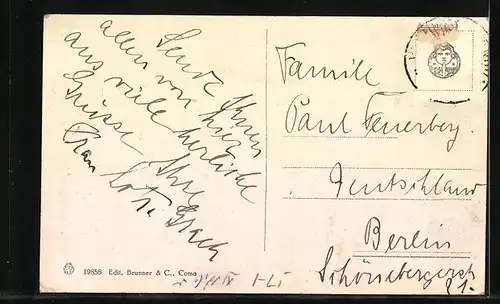 Sende Ihnen
allen von hier
aus viele herzliche
Grüsse. Ihre
Frau Lotte
Familie
Paul Feuerberg.
Deutschland
Berlin
Schönebergerstr
21.
19858 Edit. Brunner & C., Como